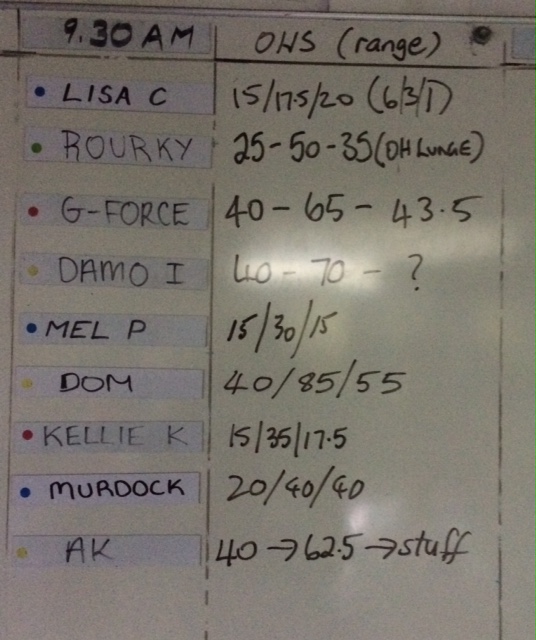 9.30 AM OHS (range)
LISA C 15/17.5/20 (6/3/1)
ROURKY 25-50-35 (OH LUNGE)
G-FORCE 40-65-43.5
DAMO I 40-70-?
MEL P 15/30/15
DOM 40/85/55
KELLIE K 15/35/17.5
MURDOCK 20/40/40
AK 40→62.5→stuff